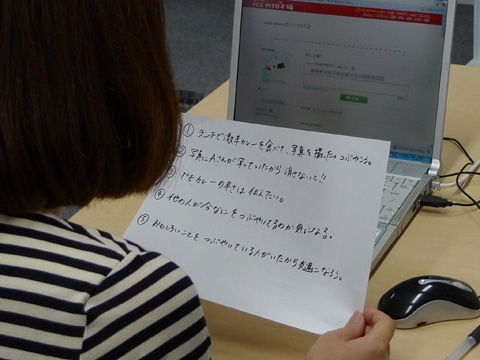 FC2 PIYO
① ランチで激辛カレーを食べて、写真を撮った。つぶやこう。
② 写真にAさんが写っていたから消さないと!!
③ でもカレーの辛さは伝えたい。
④ 他の人が今なにをつぶやいてるのか気になる。
⑤ おもしろいことをつぶやいている人がいたから友達になろう。